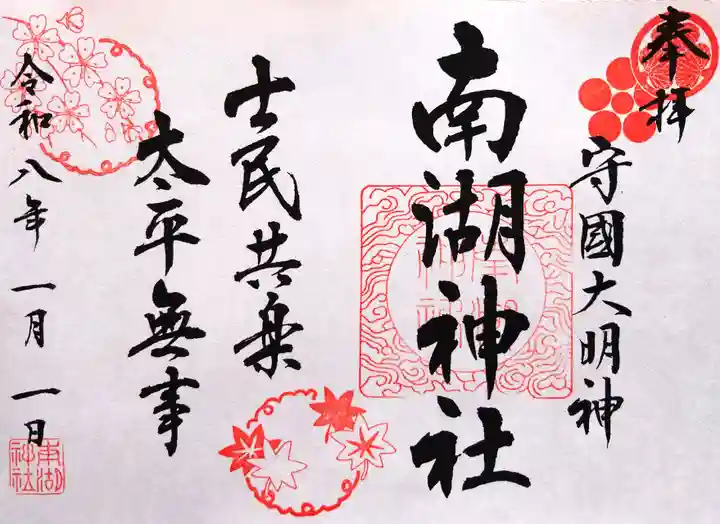 奉拝
守國大明神
南湖神社
士民共楽
太平無事
令和八年一月一日
南湖神社